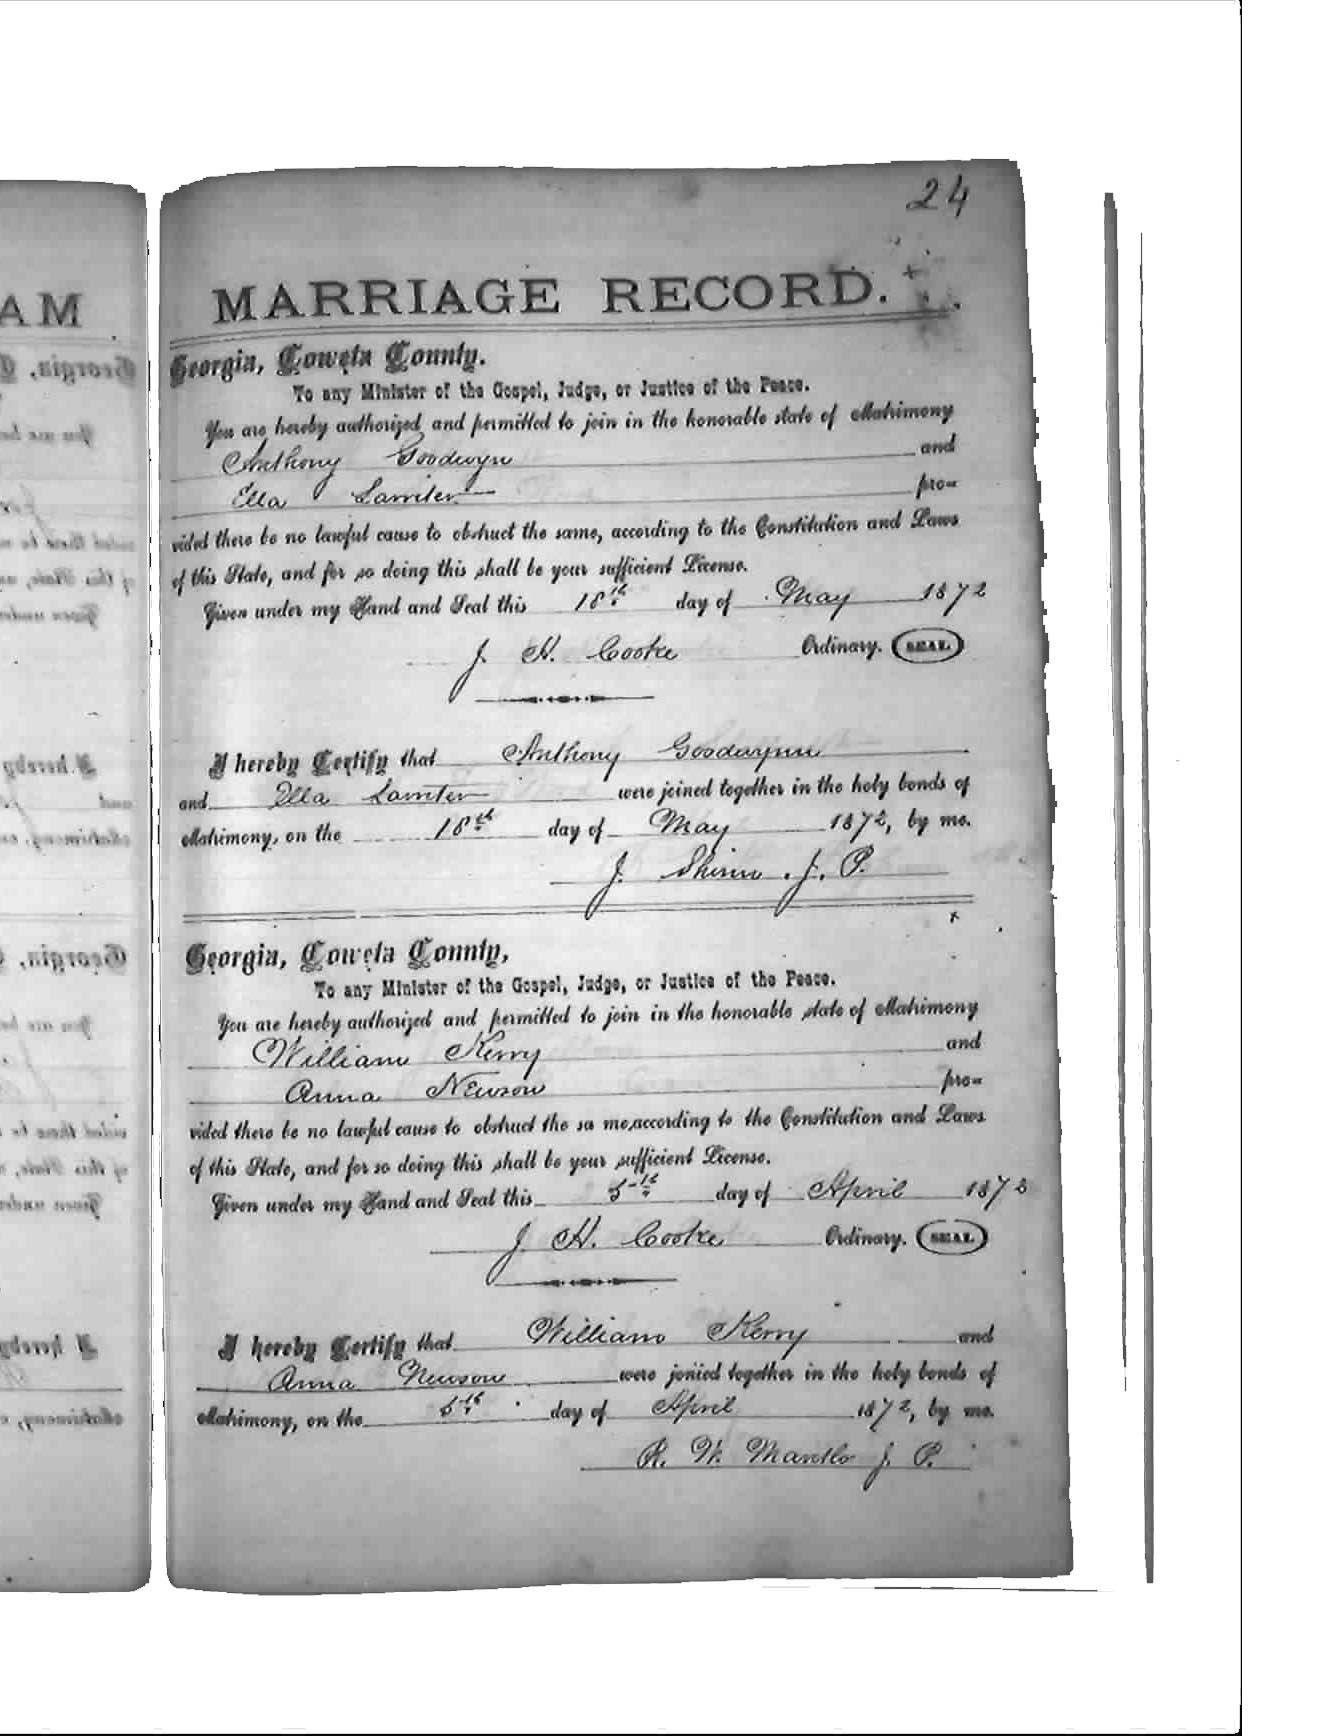 24
MARRIAGE RECORD.
Georgia, Coweta County.
To any Minister of the Gospel, Judge, or Justice of the Peace.
You are hereby authorized and permitted to join in the honorable state of Matrimony
Anthony Goodwyn and
Ella pro=
vided there be no lawful cause to obstruct the same, according to the Constitution and Laws
of this State, and for so doing this shall be your sufficient License.
Given under my Hand and Seal this 18th day of May 1872
J. H. Cooke Ordinary. SEAL
I hereby Certify that Anthony Goodwynn
and Ella were joined together in the holy bonds of
Matrimony, on the 18th day of May 1872, by me.
J. Shinn. J. P.
Georgia, Coweta County,
To any Minister of the Gospel, Judge, or Justice of the Peace.
You are hereby authorized and permitted to join in the honorable state of Matrimony
William Kerry and
Anna Newsow pro=
vided there be no lawful cause to obstruct the sa me,according to the Constitution and Laws
of this State, and for so doing this shall be your sufficient License.
Given under my Hand and Seal this 5th day of April 1872
J. H. Cooke Ordinary. SEAL
I hereby Certify that William Kerry and
Anna Newsow were joined together in the holy bonds of
Matrimony, on the 5th day of April 1872, by me.
R. W. J. P.